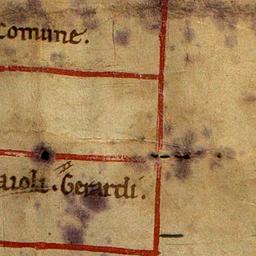 comune.
aroli. Gerardi.